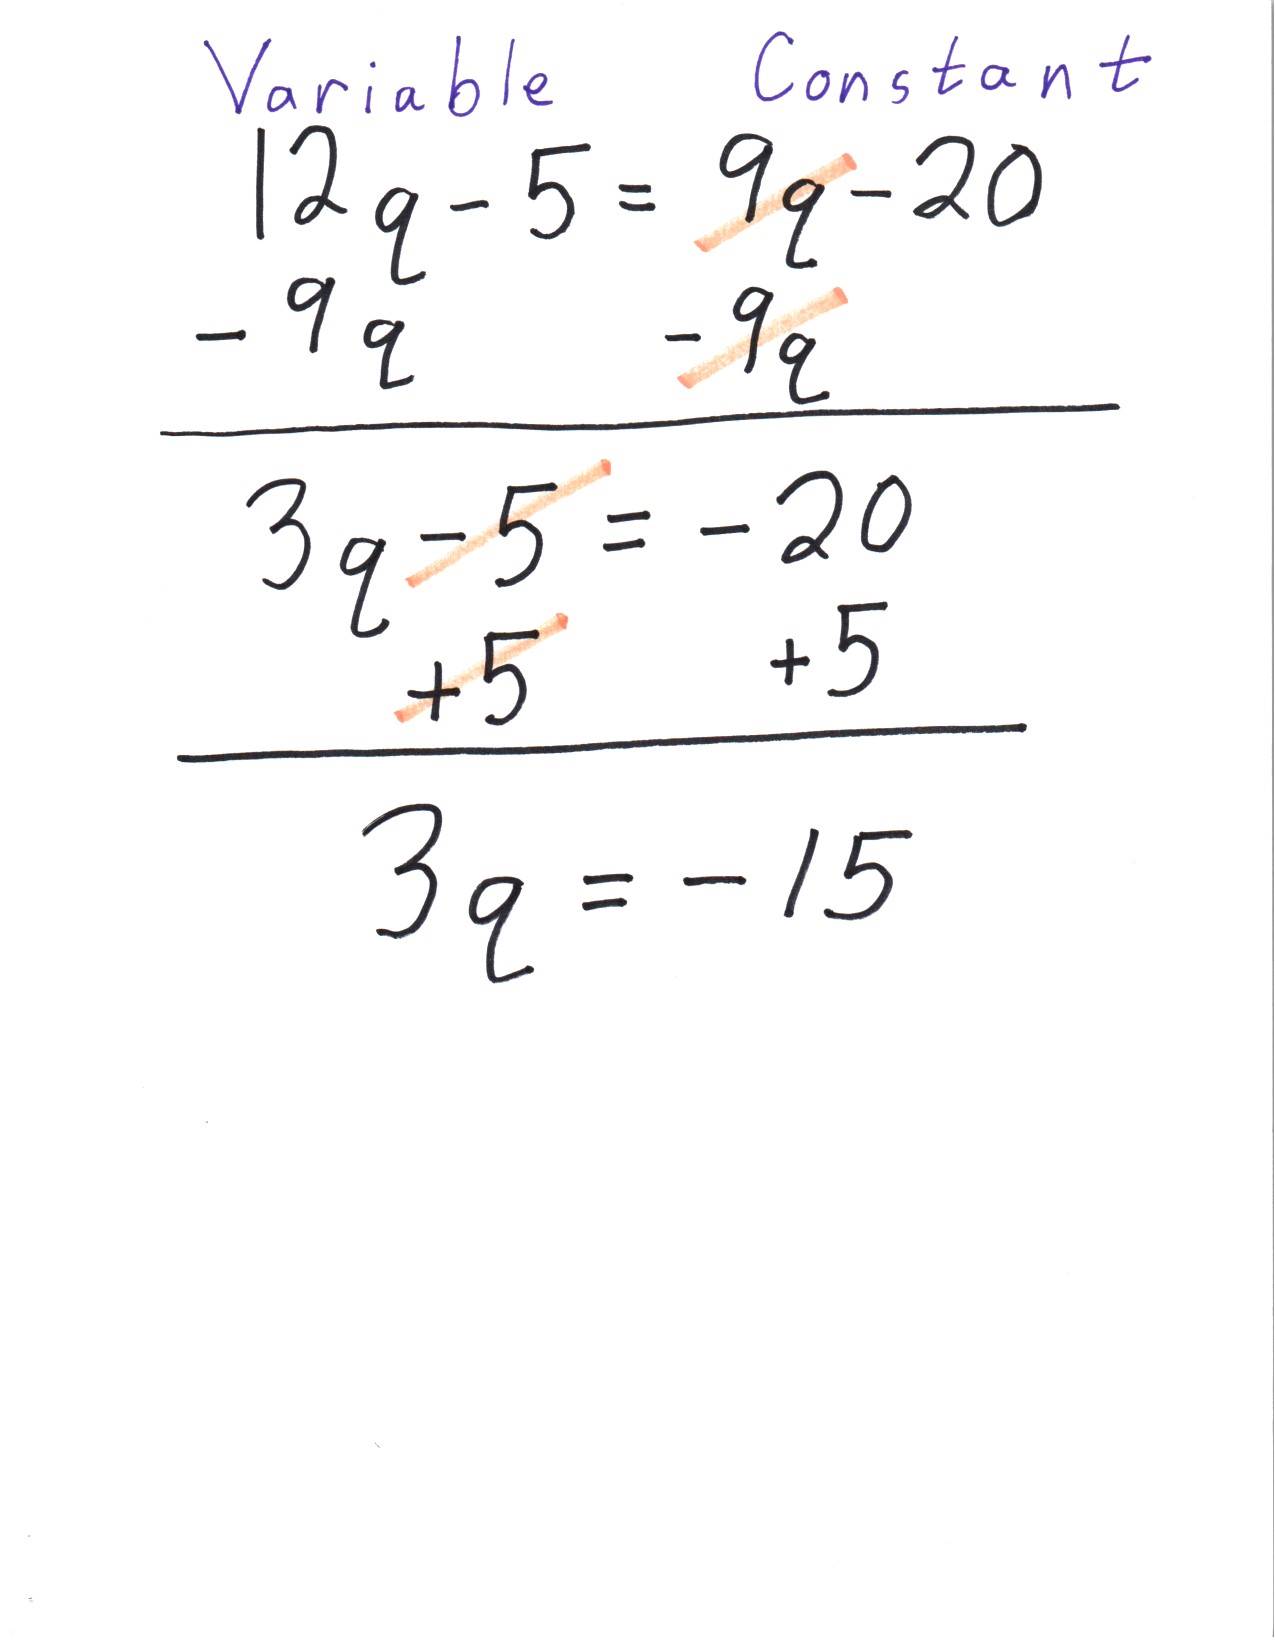 Variable Constant
12q - 5 = 9q - 20
- 9q - 9q
3q - 5 = - 20
+ 5 + 5
3q = - 15